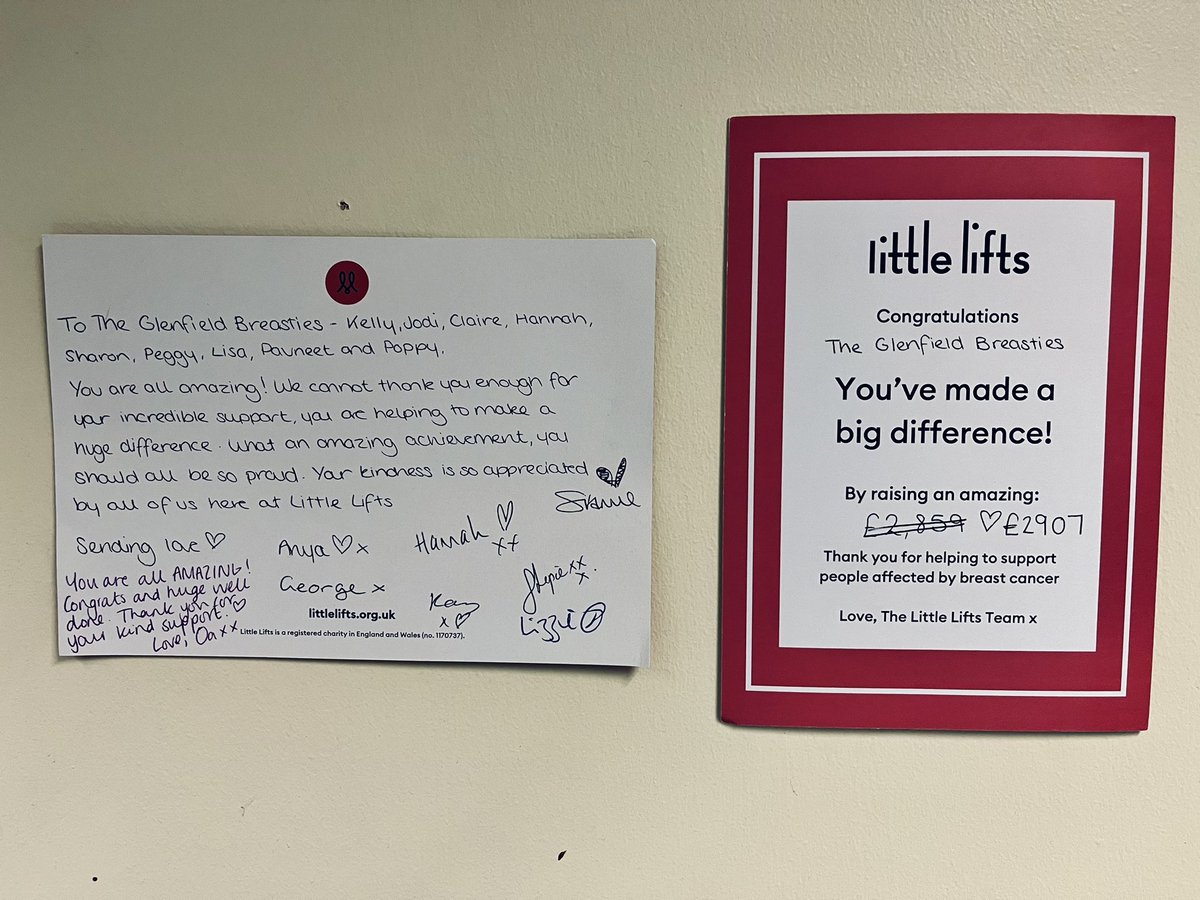 To The Glenfield Breasties - Kelly, Jodi, Claire, Hannah,
Sharon, Peggy, Lisa, Pavneet and Poppy.
You are all amazing! We cannot thank you enough for
your incredible support, you are helping to make a
huge difference. What an amazing achievement, you
should all be so proud. Your kindness is so appreciated
by all of us here at Little Lifts
Sending love ♡
Anya ♡ x
Hannah ♡
xx
George x
xx
x
x ♡
Lizzie
You are all AMAZING!
Congrats and huge well
done. Thank you for
your kind support! ♡
Love, Oa xx
littlelifts.org.uk
Little Lifts is a registered charity in England and Wales (no. 1170737).
little lifts
Congratulations
The Glenfield Breasties
You've made a
big difference!
By raising an amazing:
£2,859 ♡ £2907
Thank you for helping to support
people affected by breast cancer
Love, The Little Lifts Team x